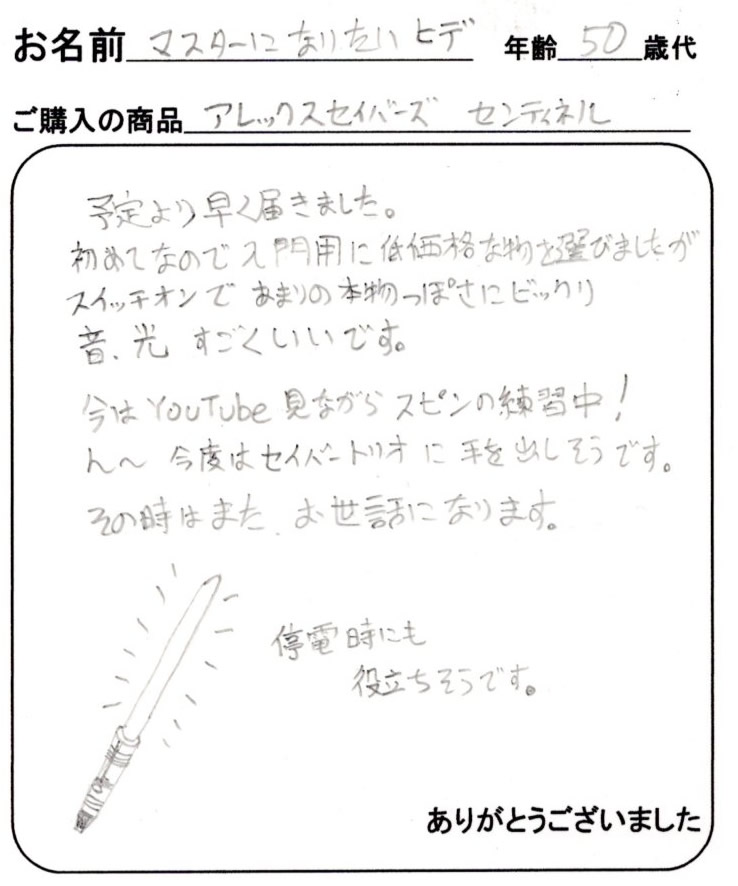 お名前 マスターになりたいヒデ 年齢 50 歳代
ご購入の商品 アレックスセイバーズ センティネル
予定より早く届きました。
初めてなので入門用に低価格な物を選びましたが
スイッチオンであまりの本物っぽさにビックリ
音、光 すごくいいです。
今はYouTube見ながらスピンの練習中!
ん〜 今度はセイバートリオに手を出しそうです。
その時はまた、お世話になります。
停電時にも
役立ちそうです。
ありがとうございました